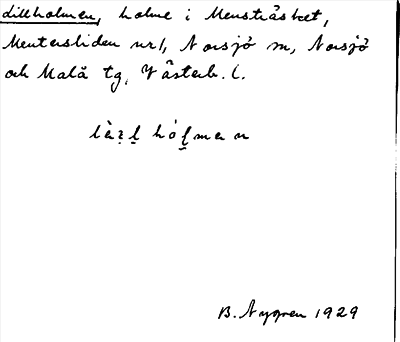 dillholmen, holme i Mensträsket,
Mentersliden nr 1, Norsjö sn, Norsjö
och Malå tg, Västerb. l.
hólmen
B. Nygren 1929